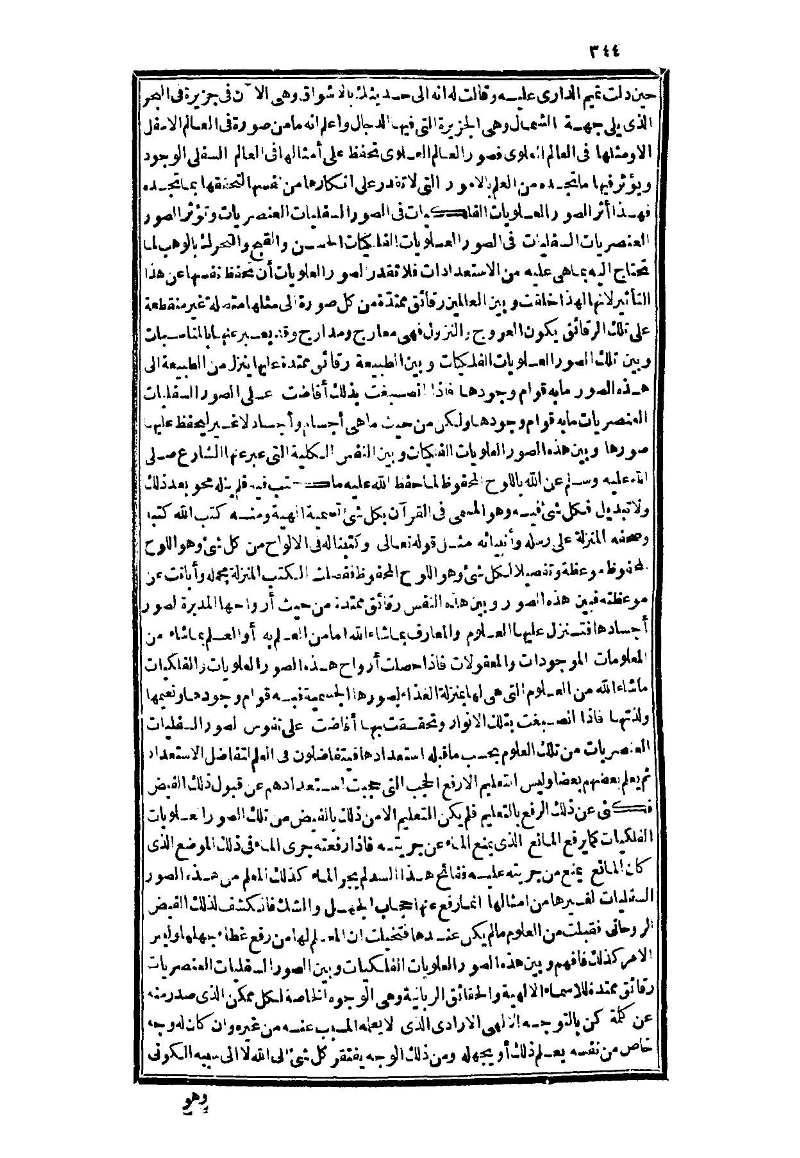 ٣٤٤
حين دلت تميم الدارى عليه وقالت له انه الى حديثك بالاشواق وهى الآن فى جزيرة فى البحر
الذى يلى جهة الشمال وهى الجزيرة التى فيها الدجال واعلم انه ما من صورة فى العالم الاسفل
الا ومثلها فى العالم العلوى فصور العالم العلوى تحفظ على أمثالها فى العالم السفلى الوجود
ويؤثر فيها ما تجده من العلم بالامور التى لا تقدر على انكارها من نفسها لتحققها بما تجده
فهذا أثر الصور العلويات الفلكيات فى الصور السفليات العنصريات وتؤثر الصور
العنصريات السفليات فى الصور العلويات الفلكيات الحسن والقبح والتحرك بالوهب لما
تحتاج اليه بما هى عليه من الاستعدادات فلا تقدر الصور العلويات أن تحفظ نفسها عن هذا
التأثير لانها لهذا خلقت وبين العالمين رقائق ممتدة من كل صورة الى مثلها متصلة غير منقطعة
على تلك الرقائق يكون العروج والنزول فهى معارج ومدارج وقد يعبر عنها بالمناسبات
وبين تلك الصور العلويات الفلكيات وبين الطبيعة رقائق ممتدة عليها ينزل من الطبيعة الى
هذه الصور ما به قوام وجودها فاذا انصبغت بذلك أفاضت على الصور السفليات
العنصريات ما به قوام وجودها ولكن من حيث ما هى أجسام وأجساد لا غير ليحفظ عليها
صورها وبين هذه الصور العلويات الفلكيات وبين النفس الكلية التى عبر عنها الشارع صلى
الله عليه وسلم عن الله باللوح المحفوظ لما حفظ الله عليه ما كتب فيه فلم ينله محو بعد ذلك
ولا تبديل فكل شئ فيه وهو المسمى فى القرآن بكل شئ تسمية الهية ومنه كتب الله كتبا
وصحفه المنزلة على رسله وأنبيائه مثل قوله تعالى وكتبنا له فى الالواح من كل شئ وهو اللوح
المحفوظ موعظة وتفصيلا لكل شئ وهو اللوح المحفوظ ففصلت الكتب المنزلة مجمله وأبانت عن
موعظته فبين هذه الصور وبين هذه النفس رقائق ممتدة من حيث أرواحها المدبرة لصور
أجسادها فتنزل عليها العلوم والمعارف بما شاء الله اما من العلم به أو العلم بما شاء من
المعلومات الموجودات والمعقولات فاذا حصلت أرواح هذه الصور العلويات والفلكيات
ما شاء الله من العلوم التى هى لها بمنزلة الغذاء لصورها الجسمية فبه قوام وجودها ونعيمها
ولذتها فاذا انصبغت بتلك الانوار وتحققت بها أفاضت على نفوس الصور السفليات
العنصريات من تلك العلوم بحسب ما قبله استعدادها فيتفاضلون فى العلم لتفاضل الاستعداد
ثم يعلم بعضهم بعضا وليس التعليم الا رفع الحجب التى حجبت استعدادهم عن قبول ذلك الفيض
فكنى عن ذلك الرفع بالتعليم فلم يكن التعليم الا من ذلك بالفيض من تلك الصور العلويات
الفلكيات كما يرفع المانع الذى يمنع الماء عن جريته فاذا رفعته جرى الماء فى ذلك الموضع الذى
كان المانع يمنع من جريته عليه ففاتح هذا السد لم يجر الماء كذلك المعلم من هذه الصور
السفليات لغيرها من امثالها انما رفع عنها حجاب الجهل والشك فانكشف لذلك الفيض
الروحانى فقبلت من العلوم ما لم يكن عندها فتخيلت ان المعلم لها من رفع غطاء جهلها وليس
الامر كذلك فافهم وبين هذه الصور العلويات الفلكيات وبين الصور السفليات العنصريات
رقائق ممتدة للاسماء الالهية والحقائق الربانية وهى الوجوه الخاصة لكل ممكن الذى صدر منه
عن كلمة كن بالتوجه الالهى الارادى الذى لا يعلمه المسبب عنه من غيره وان كان له وجه
خاص من نفسه يعلم ذلك أو يجهله ومن ذلك الوجه يفتقر كل شئ الى الله لا الى سببه الكونى
وهو